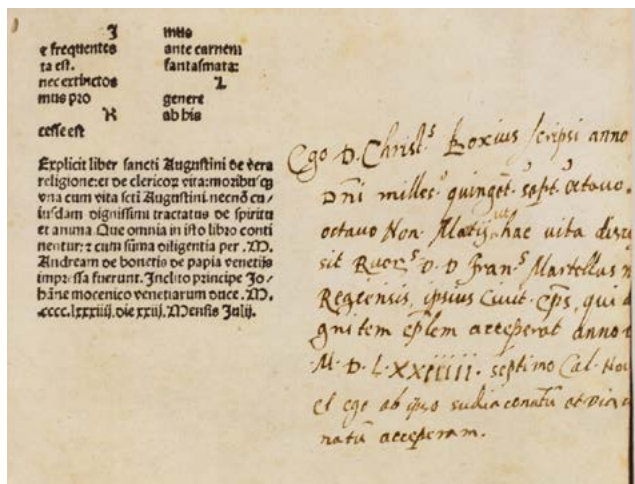 J mus
e frequentes ante carnem
ta est. fantasmata:
nec extinctos L
mus pro genere
K ab his
cesse est
Explicit liber sancti Augustini de vera
religione: et de clericoꝝ vita: moribusqꝫ
vna cum vita scti Augustini necnō cu/
iusdam dignissimi tractatus de spiritu
et anima. Que omnia in isto libro conti
nentur: ⁊ cum sūma diligentia per .M.
Andream de bonetis de papia venetijs
impressa fuerunt. Inclito principe Jo/
hāne mocenico venetiarum duce. M.
.cccc.lxxxiiij. die .xxiij. Mensis Julij.
Ego D. Christ.s Boxius scripsi anno
Dn̄i milles. quinget. sept. octavo.
octavo Non. Matij ut hac vita disce
sit Rver.s D. D Fran.s Martellus
Regiensis, ipsius Civit. Eps, qui
gnitem acceperat anno
M. D. L. XXIIIIII. septimo Cal. Nov
et ego ab ipso
natū acceperam.